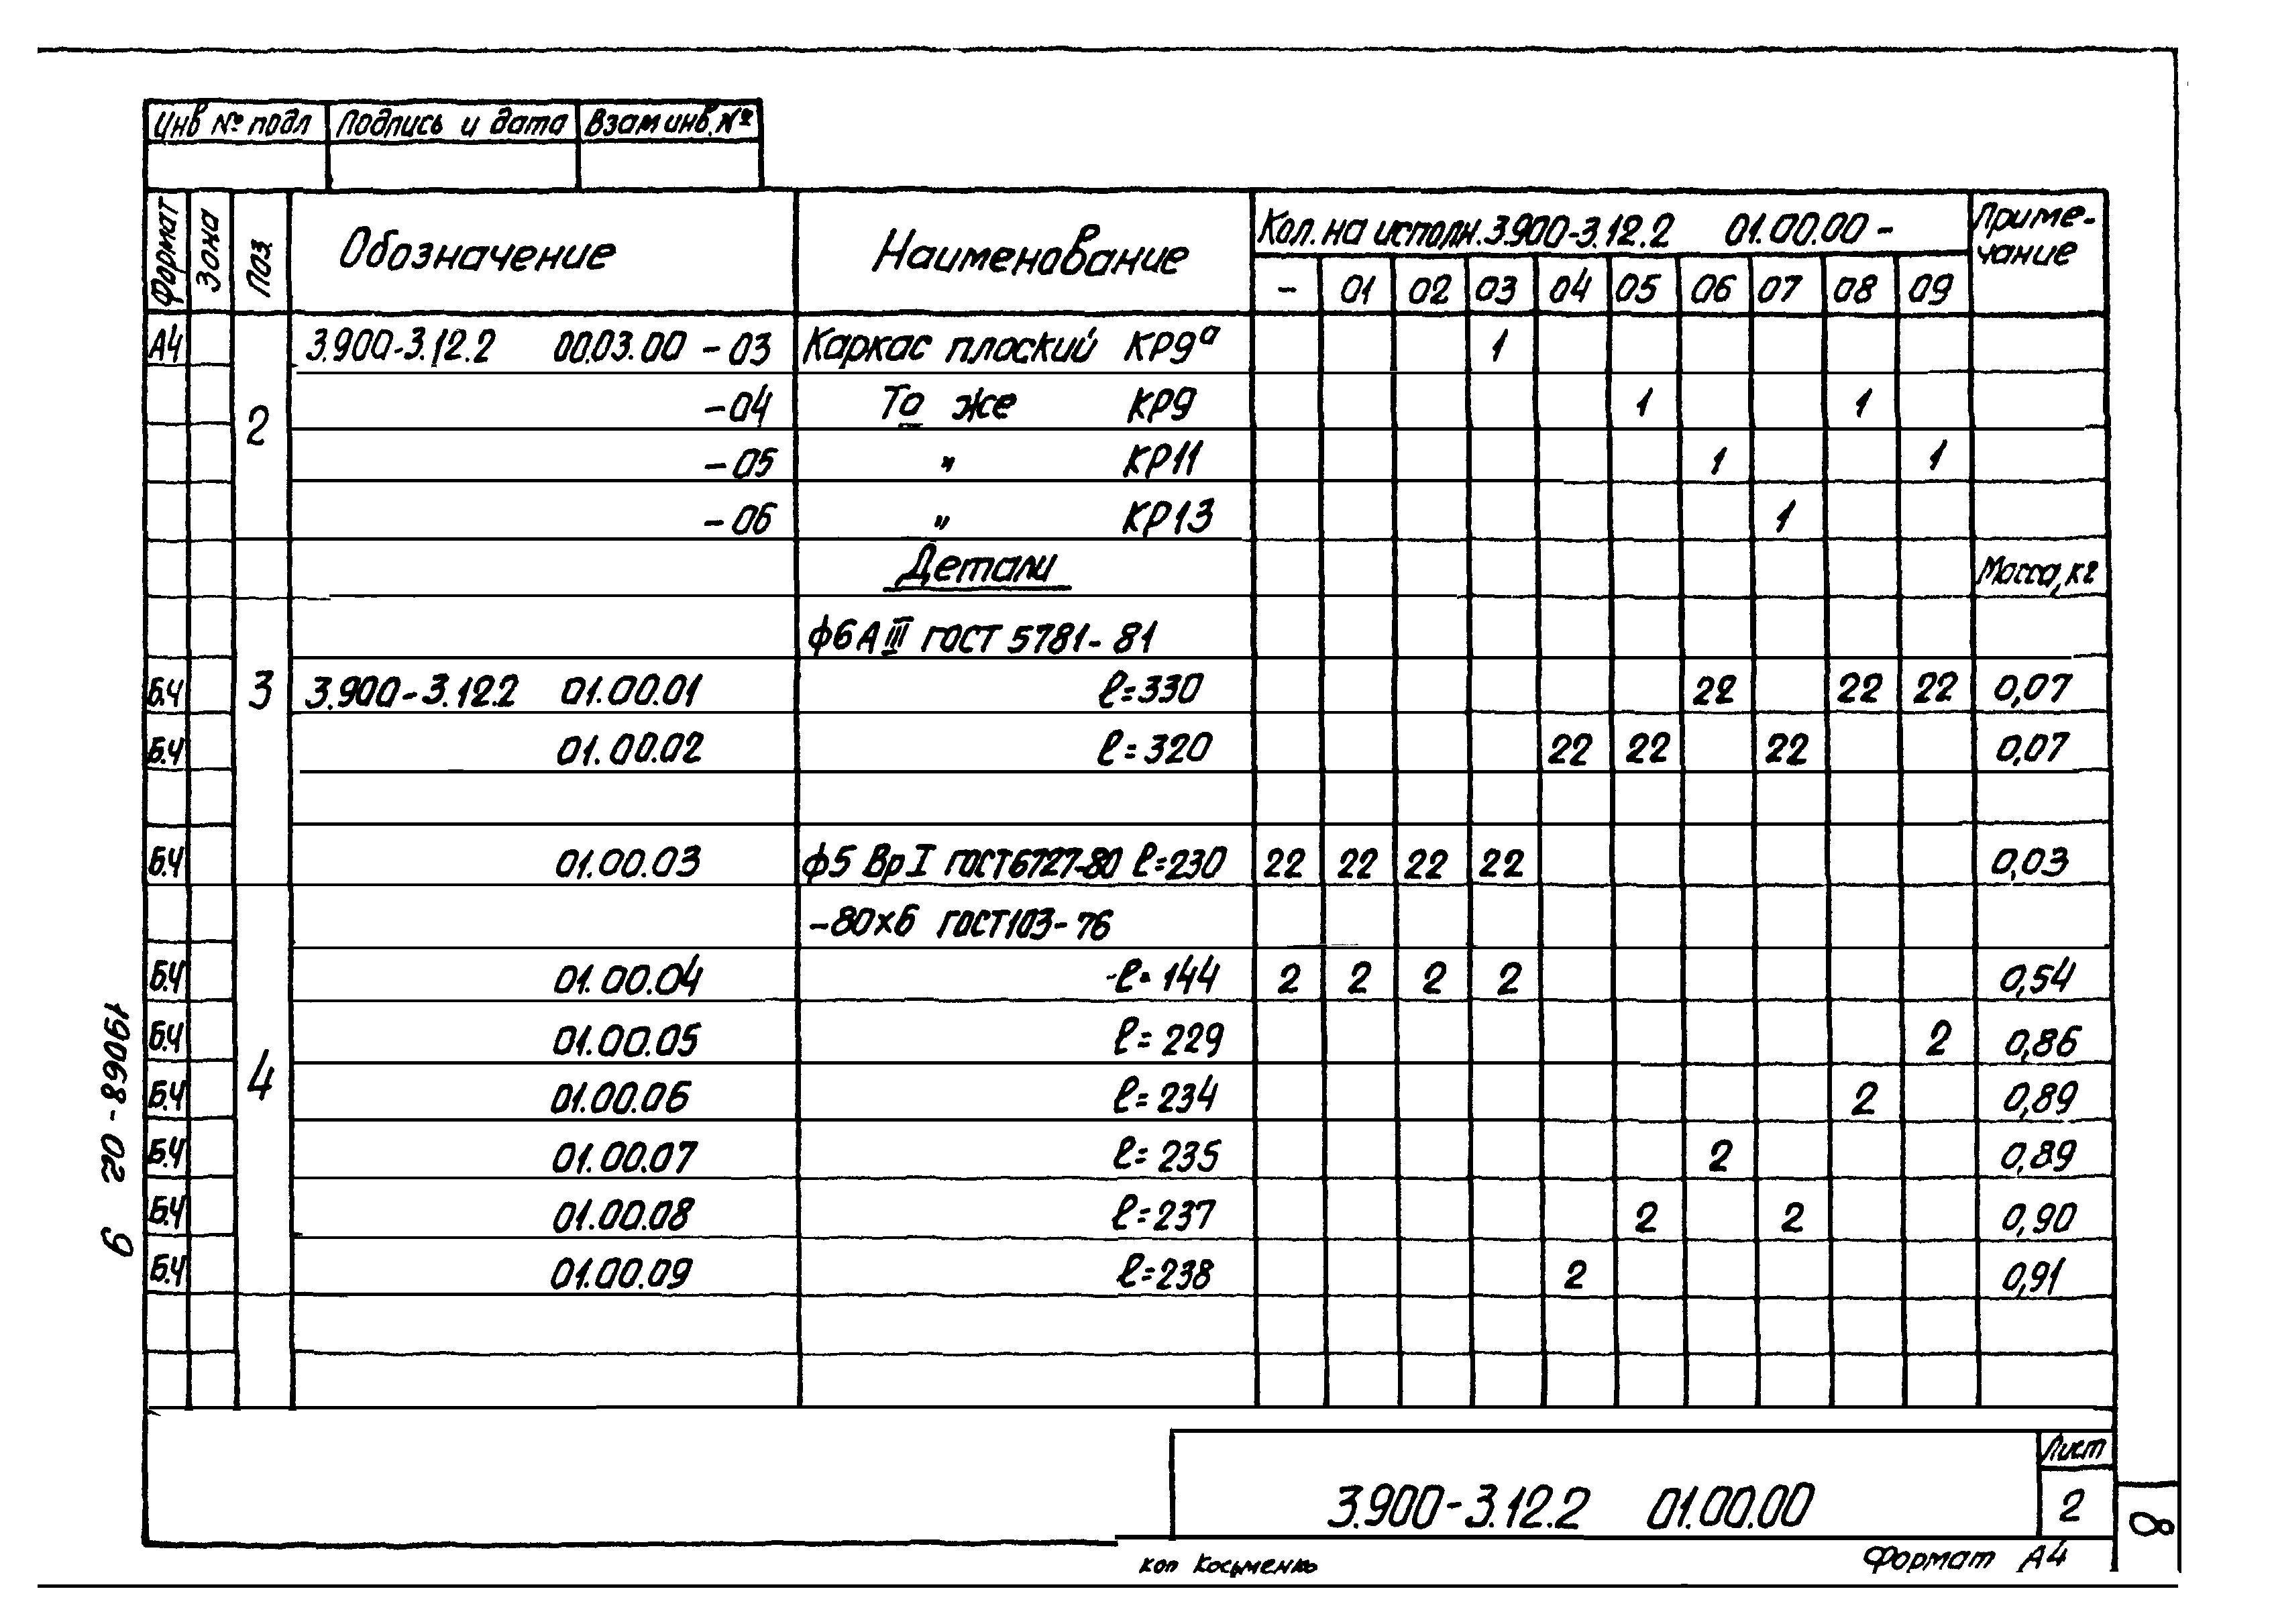 Инв № подл Подпись и дата Взам инв. №
Формат Зона Поз. Обозначение Наименование Кол. на исполн. 3.900-3.12.2 01.00.00 - Приме-
чание
- 01 02 03 04 05 06 07 08 09
А4 3.900-3.12.2 00.03.00 -03 Каркас плоский КР9а 1
2 -04 То же КР9 1 1
-05 " КР11 1 1
-06 " КР13 1
Детали Масса, кг
ф6АIII ГОСТ 5781-81
Б.Ч 3 3.900-3.12.2 01.00.01 ℓ=330 22 22 22 0,07
Б.Ч 01.00.02 ℓ=320 22 22 22 0,07
Б.Ч 01.00.03 ф5 ВрI ГОСТ6727-80 ℓ=230 22 22 22 22 0,03
-80х6 ГОСТ103-76
Б.Ч 01.00.04 ℓ=144 2 2 2 2 0,54
Б.Ч 01.00.05 ℓ=229 2 0,86
Б.Ч 4 01.00.06 ℓ=234 2 0,89
Б.Ч 01.00.07 ℓ=235 2 0,89
Б.Ч 01.00.08 ℓ=237 2 2 0,90
Б.Ч 01.00.09 ℓ=238 2 0,91
19068-02 9
3.900-3.12.2 01.00.00
Лист
2
8
коп Косьменко Формат А4